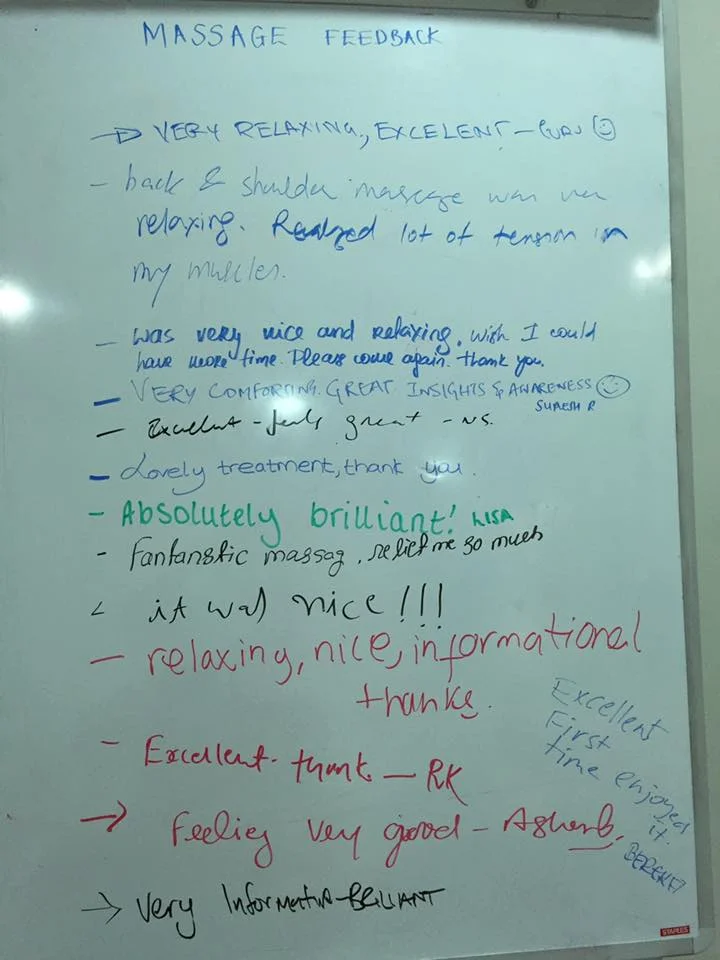 MASSAGE FEEDBACK
VERY RELAXING, EXCELENT -
- back & shoulder massage was
relaxing. lot of tension in
my muscles.
- was very nice and relaxing. wish I could
have more time. Please come again. thank you.
- VERY COMFORTING. GREAT INSIGHTS & AWARENESS
SURESH R
- Excellent - feels great - NS.
- Lovely treatment, thank you.
- Absolutely brilliant! LISA
- fantanstic massag, relief me so much
it was nice!!!
- relaxing, nice, informational
thanks.
- Excellent. thank - RK
→ Feeling very good -
→ very - BRILIANT
Excellent
First
time enjoyed
it.
STAPLES